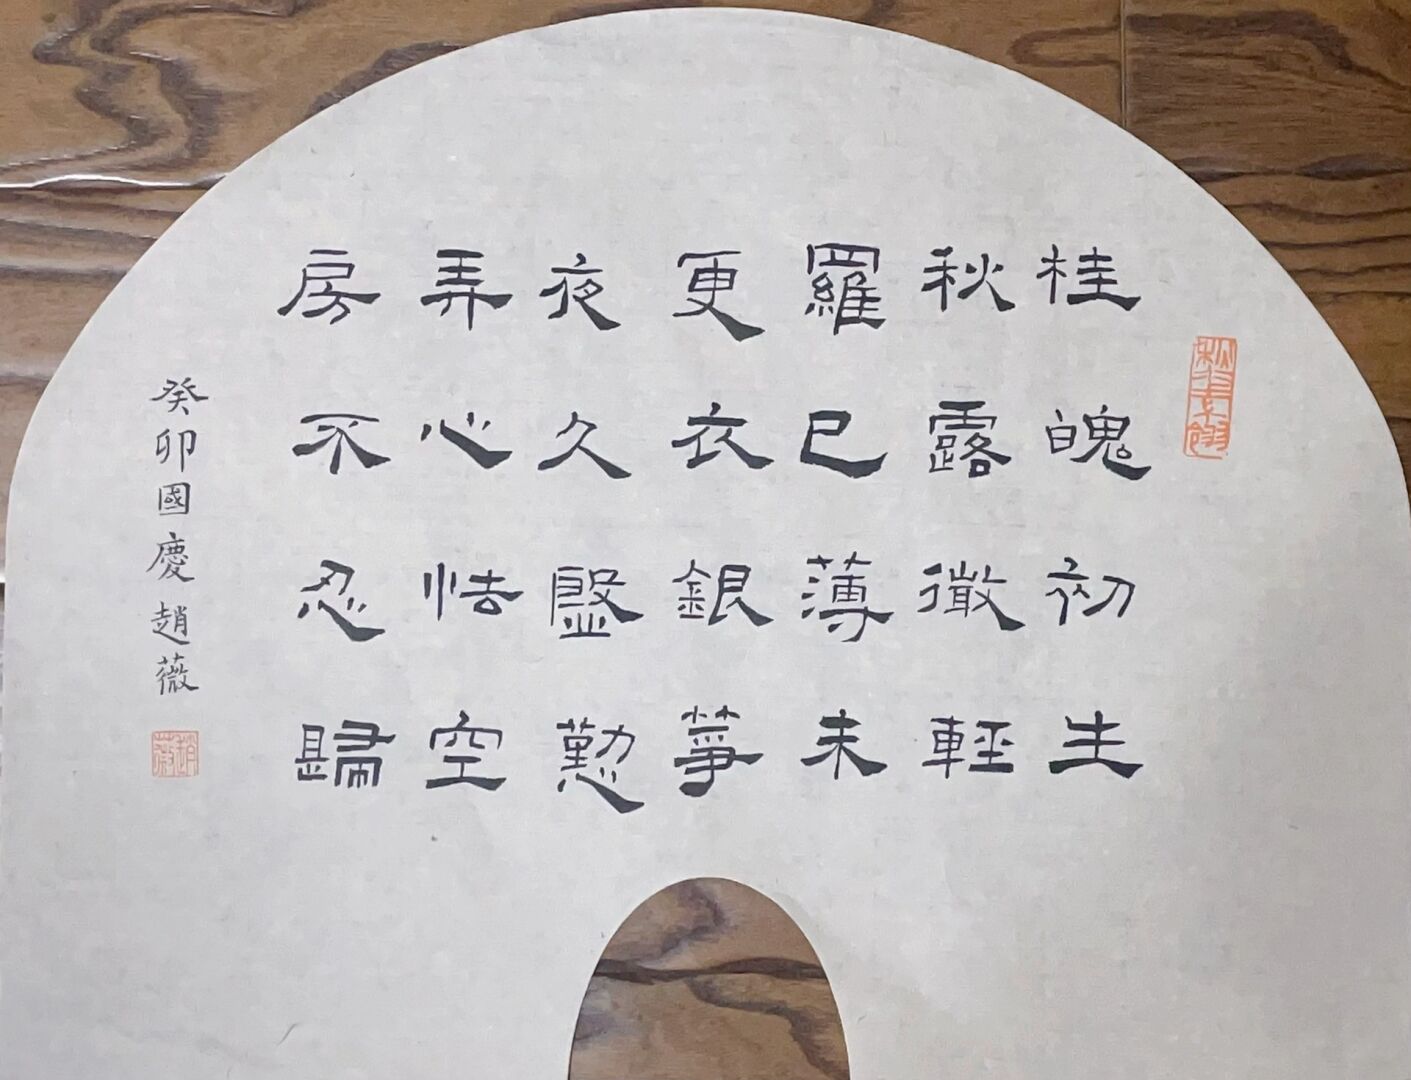 桂魄初生
秋露微輕
羅已薄未
更衣銀箏
夜久慇懃
弄心怯空
房不忍歸
癸卯國慶趙薇
趙薇